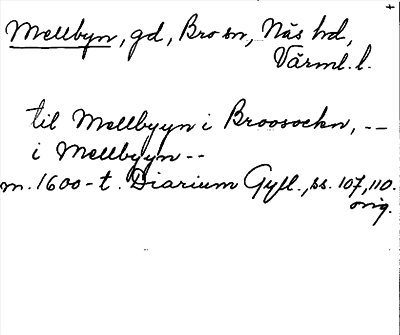 +
Mellbyn, gd, Bro sn, Näs hd,
Värml. l.
til Mellbyyn i Broosockn, --
i Mellbyyn --
m. 1600-t. Diarium Gyll., ss. 107, 110.
orig.